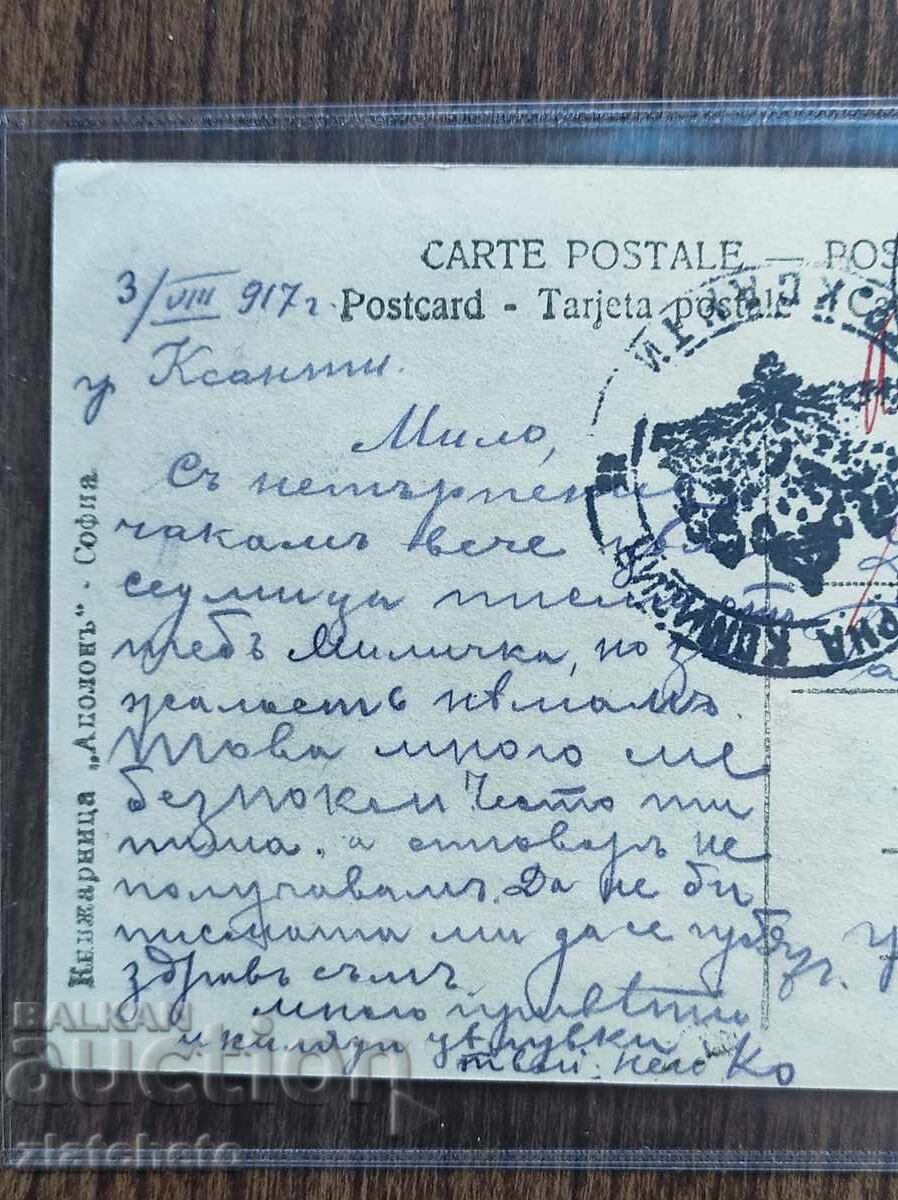 CARTE POSTALE — POS
Postcard - Tarjeta postale Ca
3/VIII 917 г
гр Ксанти.
Мило,
Съ нетърпение
чакамъ вече цѣла
седмица писмо отъ
тебъ Миличка, но за
жалость нѣмамъ.
Това много ме
безпокои Често ти
пиша, а отговоръ не
получавамъ. Да не би
писмата ми да се губятъ.
здравъ съмъ.
много привѣти
и хиляди цѣлувки
твой:
Книжарница „Аполонъ“ - София
BALKAN
auction
zlatcheto